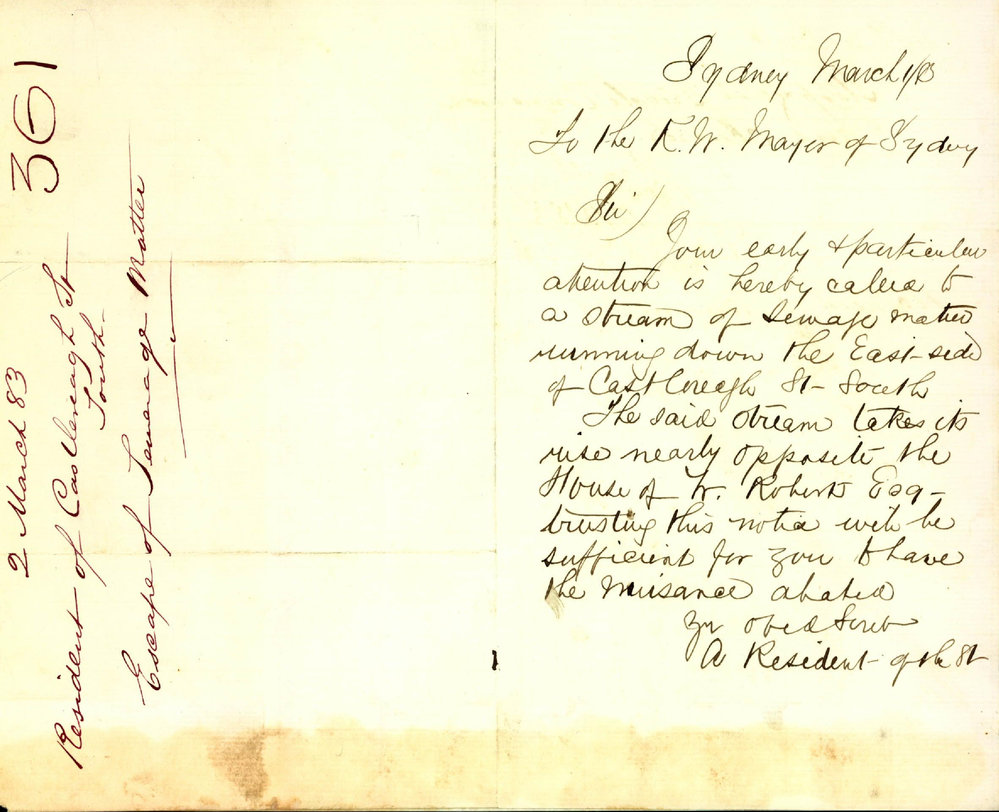 361
2 March 83
Resident of Castlereagh St
South
Escape of Sewerage Matter
Sydney March 1/83
To the R. W. Mayor of Sydney
Sir)
Your early & particular
attention is hereby called to
a stream of Sewage matter
running down the East-side
of Castlereagh St- South
The said stream takes its
rise nearly opposite the
House of W. Roberts Esq-
trusting this notice will be
sufficient for you to have
the nuisance abated
yr obed Servt
A Resident of the St